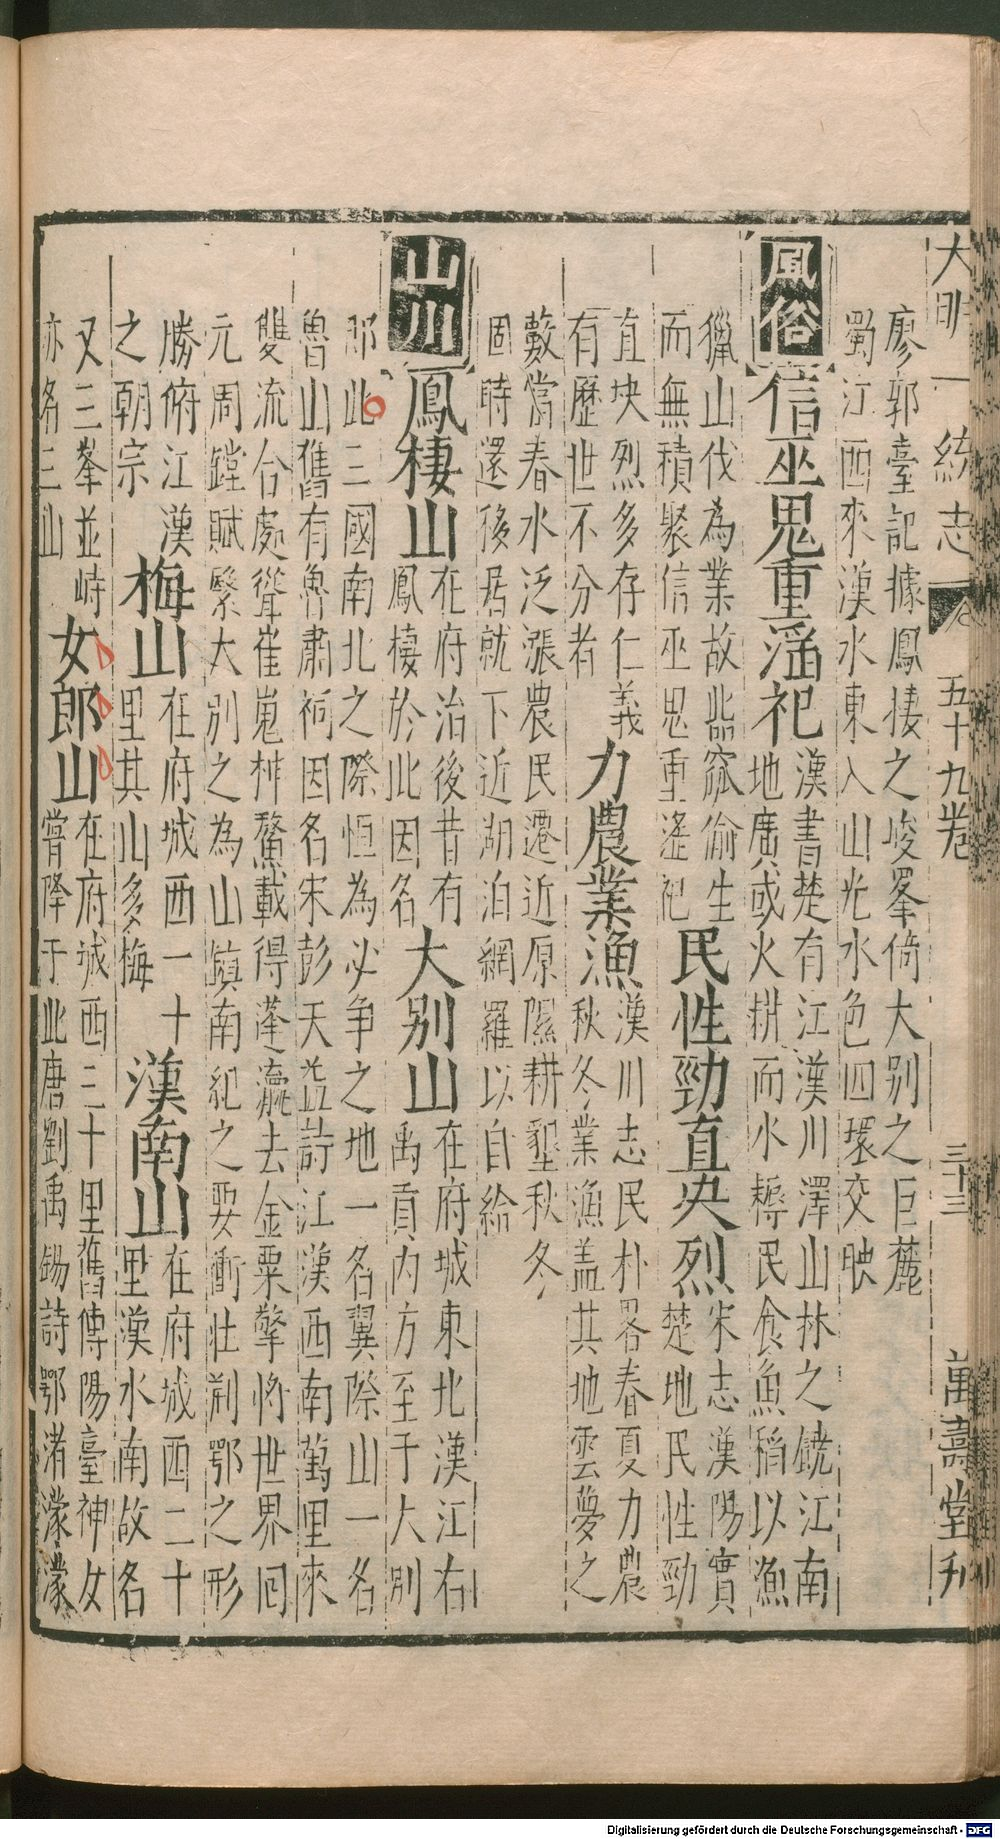 大明一統志 五十九卷 三十三 萬壽堂刋
廖郭臺記據鳳棲之峻峯倚大别之巨麓
蜀江西來漢水東入山光水色四環交映
風俗 信巫鬼重滛祀 漢書楚有江漢川澤山林之饒江南
地廣或火耕而水耨民食魚稻以漁
獵山伐為業故呰窳偷生
而無積聚信巫鬼重滛祀 民性勁直央烈 宋志漢陽實
楚地民性勁
直央烈多存仁義
有歷世不分者 力農業漁 漢川志民朴畧春夏力農
秋冬業漁盖其地雲夢之
藪當春水泛漲農民遷近原隰耕墾秋冬
固時還移居就下近湖泊網羅以自給
山川 鳳棲山 在府治後昔有
鳳棲於此因名 大别山 在府城東北漢江右
禹貢内方至于大别
郎此三國南北之際恒為必争之地一名翼際山一名
魯山舊有魯肅祠因名宋彭天益詩江漢西南萬里來
雙流合處聳崔嵬栟鰲載得蓬瀛去金粟擎將世界囘
元周鏜賦繄大别之為山鎮南紀之要衝壯荆鄂之形
勝俯江漢
之朝宗 梅山 在府城西一十
里其山多梅 漢南山 在府城西二十
里漢水南故名
又三峯並峙
亦名三山 女郎山 在府城西三十里舊傳陽臺神女
嘗降于此唐劉禹錫詩鄂渚濛濛
Digitalisierung gefördert durch die Deutsche Forschungsgemeinschaft - DFG